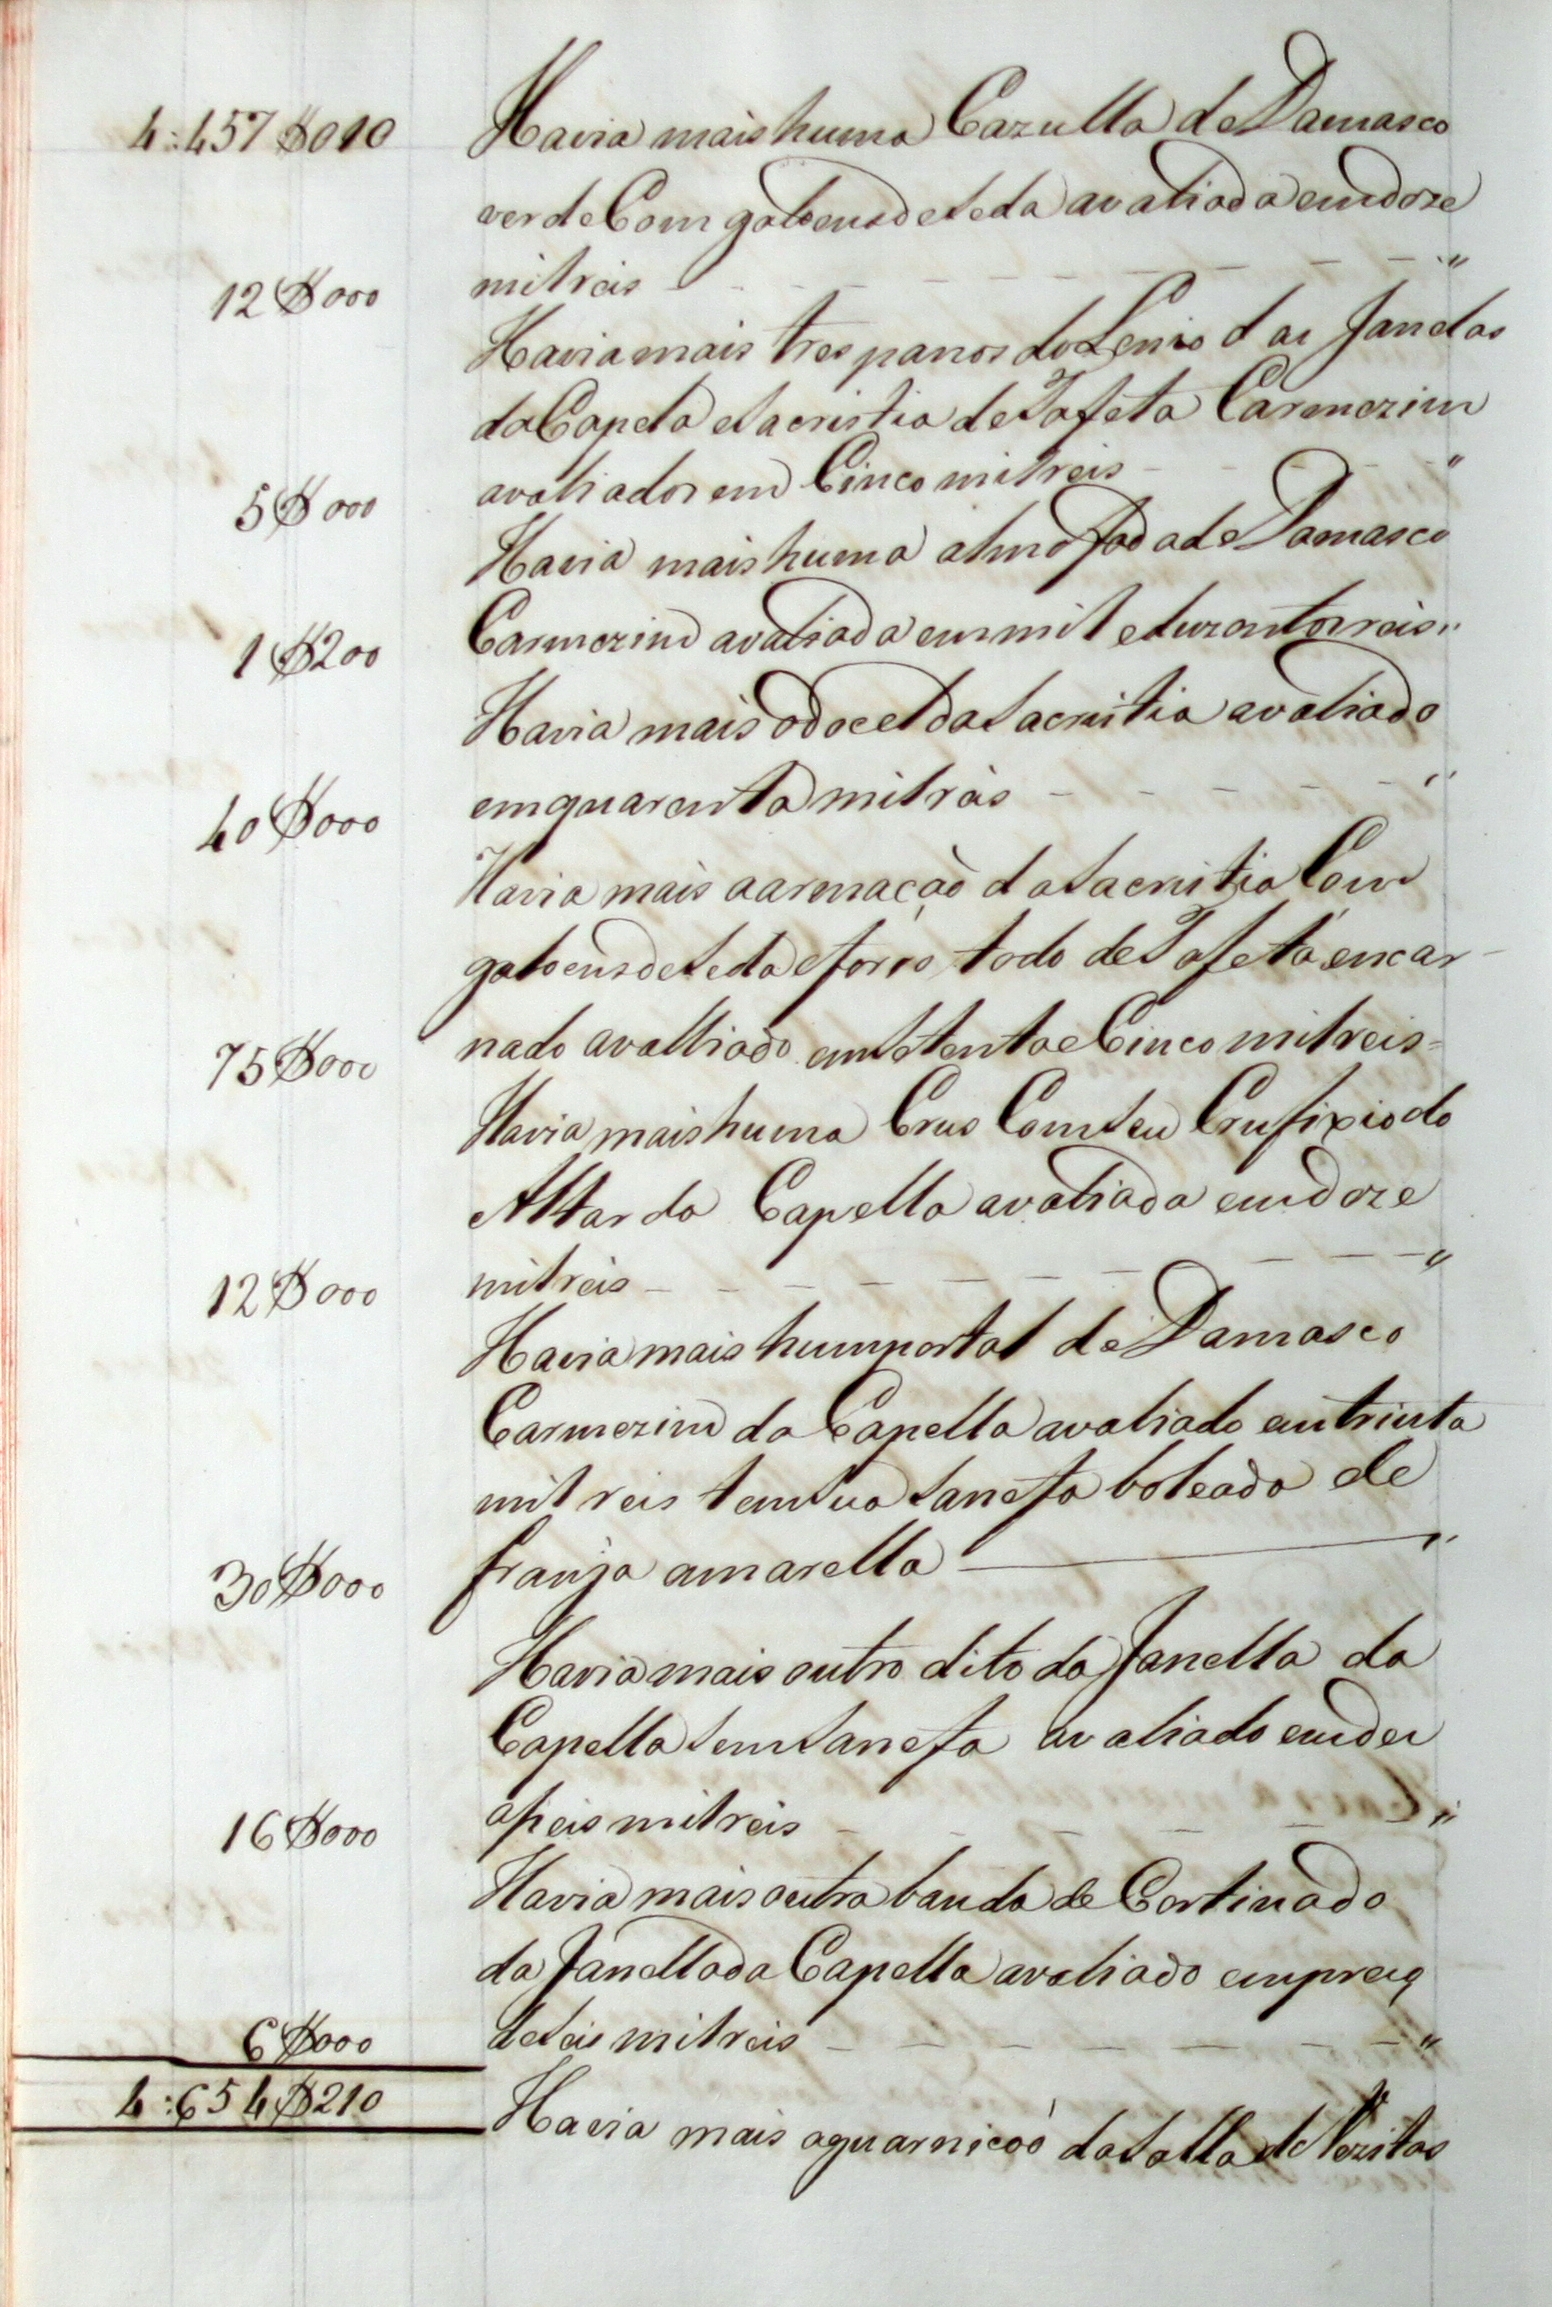 4:457$010 Havia mais huma Cazulla de Damasco
verde Com galoens de seda avaliada em doze
12$000 mil reis - - - - - - - "
Havia mais tres panos do das Janelas
da Capela e sacristia de Tafeta Carmezim
5$000 avaliados em Cinco mil reis - - - - "
Havia mais huma almofada de Damasco
1$200 Carmezim avaliada em mil e duzentos reis "
Havia mais o docel da sacristia avaliado
40$000 em quarenta mil reis - - - - - "
Havia mais a armação da sacristia Com
galoens de seda e forro todo de Tafetá encar-
75$000 nado avalliado em setenta e Cinco mil reis =
Havia mais huma Crus Com seu Crufixio do
Altar da Capella avaliada em doze
12$000 mil reis - - - - - - - - "
Havia mais hum portal de Damasco
Carmezim da Capella avaliado em trinta
mil reis tem sua sanefa boleada de
30$000 franja amarella ———— "
Havia mais outro dito da Janella da
Capella sem sanefa avaliado em dez
16$000 aseis mil reis - - - - - "
Havia mais outra banda de Cortinado
da Janella da Capella avaliado em preço
6$000 de seis mil reis - - - - - - "
4:654$210 Havia mais a guarnicaó da salla de Vezitas